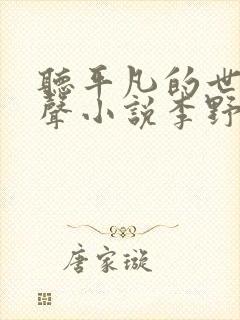 聽平凡的世
聲小說李野
唐家璇